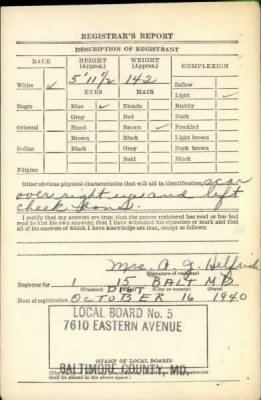 REGISTRAR'S REPORT
DESCRIPTION OF REGISTRANT
RACE HEIGHT (Approx.) WEIGHT (Approx.) COMPLEXION
5' 11 1/2 142
White ✓ EYES HAIR Sallow
Light ✓
Negro Blue ✓ Blonde Ruddy
Gray Red Dark
Oriental Hazel Brown ✓ Freckled
Brown Black Light brown
Indian Black Gray Dark brown
Bald Black
Filipino
Other obvious physical characteristics that will aid in identification scar
over right eye and left
cheek bone.
I certify that my answers are true; that the person registered has read or has had
read to him his own answers; that I have witnessed his signature or mark and that
all of his answers of which I have knowledge are true, except as follows:
Mrs. A. J. Helfrich
(Signature of registrar)
Registrar for 1 15 BALT MD.
(Precinct) DIST
Date of registration OCTOBER 16 1940
LOCAL BOARD No. 5
7610 EASTERN AVENUE
BALTIMORE COUNTY, MD.
(STAMP OF LOCAL BOARD)
shall be placed in the above space.)